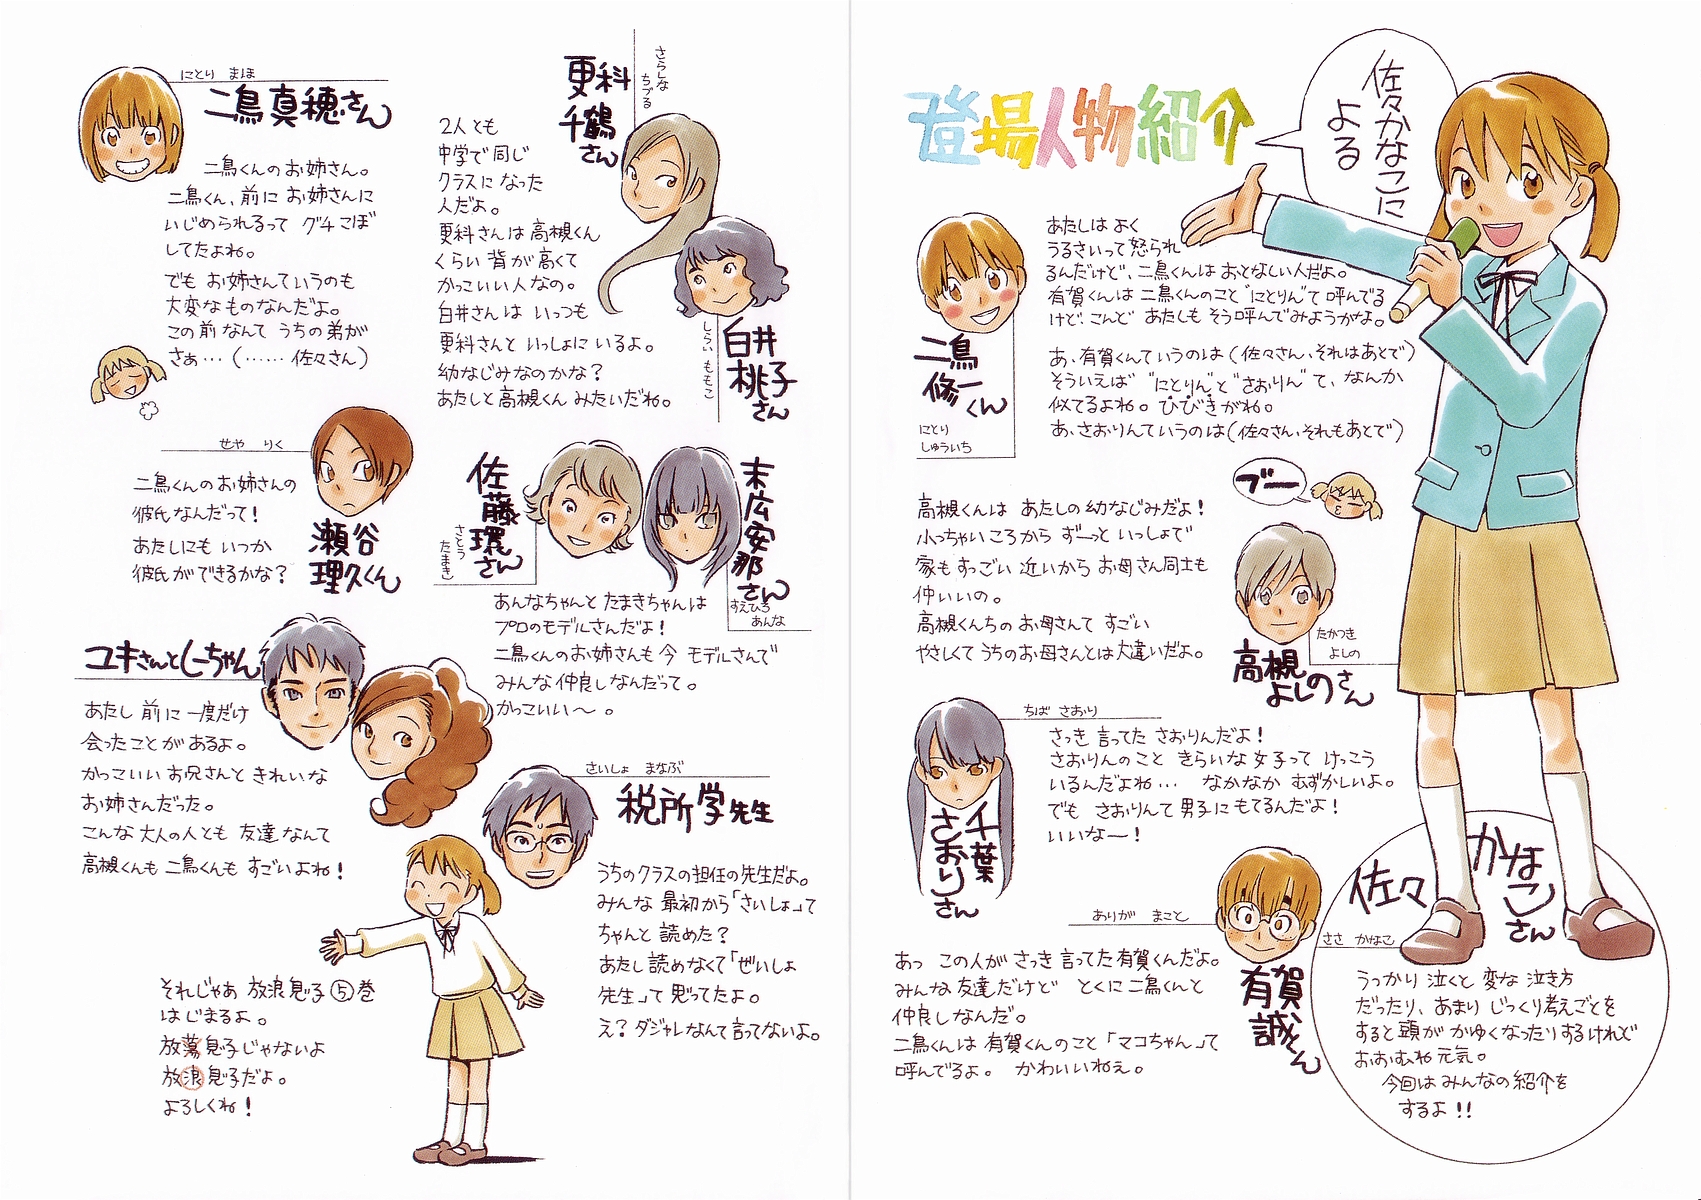 佐々かなこに
よる
登場人物紹介
あたしは よく
うるさいって怒られ
るんだけど、二鳥くんはおとなしい人だよ。
有賀くんは 二鳥くんのこと“にとりん”て 呼んでる
けど、こんど あたしも そう呼んでみようかな。
あ、有賀くんていうのは(佐々さん、それはあとで)
そういえば “にとりん”と“さおりん”て、なんか
似てるよね。ひびきがね。
あ、さおりんていうのは(佐々さん、それもあとで)
二鳥
修一
くん
にとり
しゅういち
ブー
高槻くんは あたしの幼なじみだよ!
小っちゃいころから ずーっと いっしょで
家もすっごい 近いから お母さん同士も
仲いいの。
高槻くんちの お母さんて すごい
やさしくてうちのお母さんとは大違いだよ。
たかつき
よしの
高槻
よしのさん
ちば さおり
さっき 言ってた さおりんだよ!
さおりんのこと きらいな 女子って けっこう
いるんだよね… なかなか むずかしいよ。
でも さおりんて 男子にもてるんだよ!
いいなー!
千葉
さおり
さん
ありが まこと
あっ この人が さっき 言ってた 有賀くんだよ。
みんな 友達だけど とくに 二鳥くんと
仲良しなんだ。
二鳥くんは 有賀くんのこと「マコちゃん」って
呼んでるよ。 かわいいねえ。
有賀
誠くん
佐々
かなこ
さん
ささ かなこ
うっかり 泣くと 変な 泣き方
だったり、あまり じっくり考えごとを
すると頭が かゆくなったりするけれど
おおむね 元気。
今回は みんなの 紹介を
するよ!!
にとり まほ
二鳥真穂さん
二鳥くんの お姉さん。
二鳥くん、前に お姉さんに
いじめられるって グチこぼ
してたよね。
でも お姉さんていうのも
大変なものなんだよ。
この前なんて うちの弟が
さぁ…(……佐々さん)
さらしな
ちづる
更科
千鶴
さん
2人とも
中学で 同じ
クラスに なった
人だよ。
更科さんは 高槻くん
くらい 背が 高くて
かっこいい 人なの。
白井さんは いっつも
更科さんと いっしょに いるよ。
幼なじみなのかな?
あたしと高槻くん みたいだね。
しらい ももこ
白井
桃子
さん
せや りく
二鳥くんの お姉さんの
彼氏なんだって!
あたしにも いつか
彼氏ができるかな?
瀬谷
理久くん
佐藤
環
さん
さとう
たまき
末広安那
さん
すえひろ
あんな
あんなちゃんと たまきちゃんは
プロのモデルさんだよ!
二鳥くんのお姉さんも 今 モデルさんで
みんな 仲良しなんだって。
かっこいい〜。
ユキさんとしーちゃん
あたし 前に 一度だけ
会ったことがあるよ。
かっこいい お兄さんと きれいな
お姉さんだった。
こんな 大人の人とも 友達なんて
高槻くんも 二鳥くんも すごいよね!
さいしょ まなぶ
税所学先生
うちのクラスの担任の先生だよ。
みんな 最初から「さいしょ」って
ちゃんと 読めた?
あたし 読めなくて「ぜいしょ
先生」って 思ってたよ。
え? ダジャレなんて 言ってないよ。
それじゃあ 放浪息子⑤巻
はじまるよ。
放蕩息子じゃないよ
放浪息子だよ。
よろしくね!